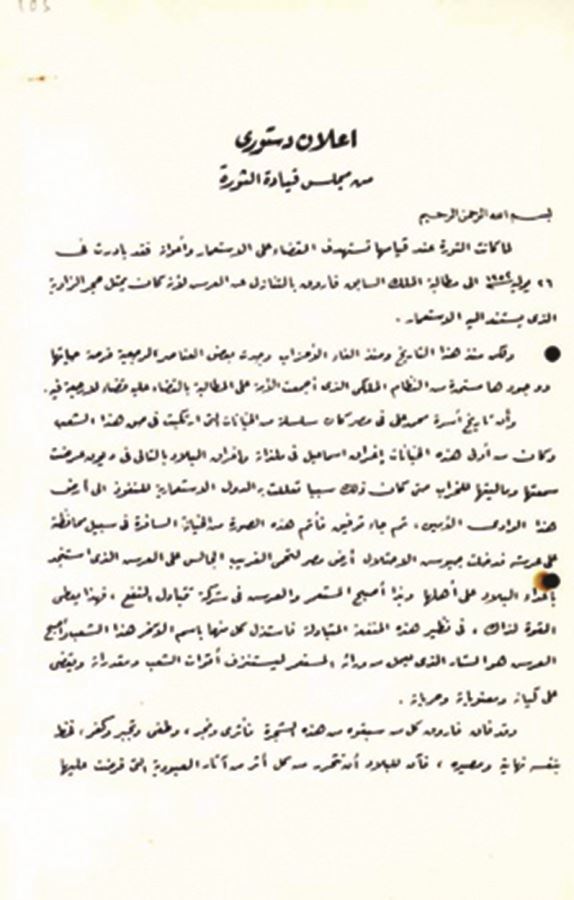 اعلان دستورى
من مجلس قيادة الثورة
بسم الله الرحمن الرحيم
لما كانت الثورة عند قيامها تستهدف القضاء على الاستعمار وأعوانه فقد بادرت فى
٢٦ يوليه ١٩٥٢ الى مطالبة الملك السابق فاروق بالتنازل عن العرش لأنه كان يمثل حجر الزاوية
الذى يستند اليه الاستعمار .
ولكن منذ هذا التاريخ ومنذ الغاء الأحزاب وجدت بعض العناصر الرجعية فرصة حياتها
ووجودها مستمدة من النظام الملكى الذى أجمعت الأمة على المطالبة بالقضاء عليه قضاء لا رجعة فيه .
وأن تاريخ أسرة محمد على فى مصر كان سلسلة من الخيانات التى ارتكبت فى حق هذا الشعب
وكان من أولى هذه الخيانات إغراق اسماعيل فى ملذاته وإغراق البلاد بالتالى فى ديون عرضت
سمعتها وماليتها للخراب حتى كان ذلك سببا تعللت به الدول الاستعمارية للنفوذ الى أرض
هذا الوادى الأمين ، ثم جاء توفيق فأتم هذه الصورة من الخيانة السافرة فى سبيل محافظته
على عرشه فدخلت جيوش الاحتلال أرض مصر لتحمى الغريب الجالس على العرش الذى استنجد
بأعداء البلاد على أهلها وبذا أصبح المستعمر والعرش فى شركة تتبادل النفع ، فهذا يعطى
القوة لذاك ، فى نظير هذه المنفعة المتبادلة فاستذل كل منهما باسم الآخر هذا الشعب وأصبح
العرش هو الستار الذى يعمل من ورائه المستعمر ليستنزف أقوات الشعب ومقدراته ويقضى
على كيانه ومعنوياته وحرياته .
وقد فاق فاروق كل من سبقوه من هذه الشجرة فأثرى وفجر ، وطغى وتجبر وكفر ، فخط
بنفسه نهايته ومصيره ، فآن للبلاد أن تتحرر من كل أثر من آثار العبودية التى فرضت عليها